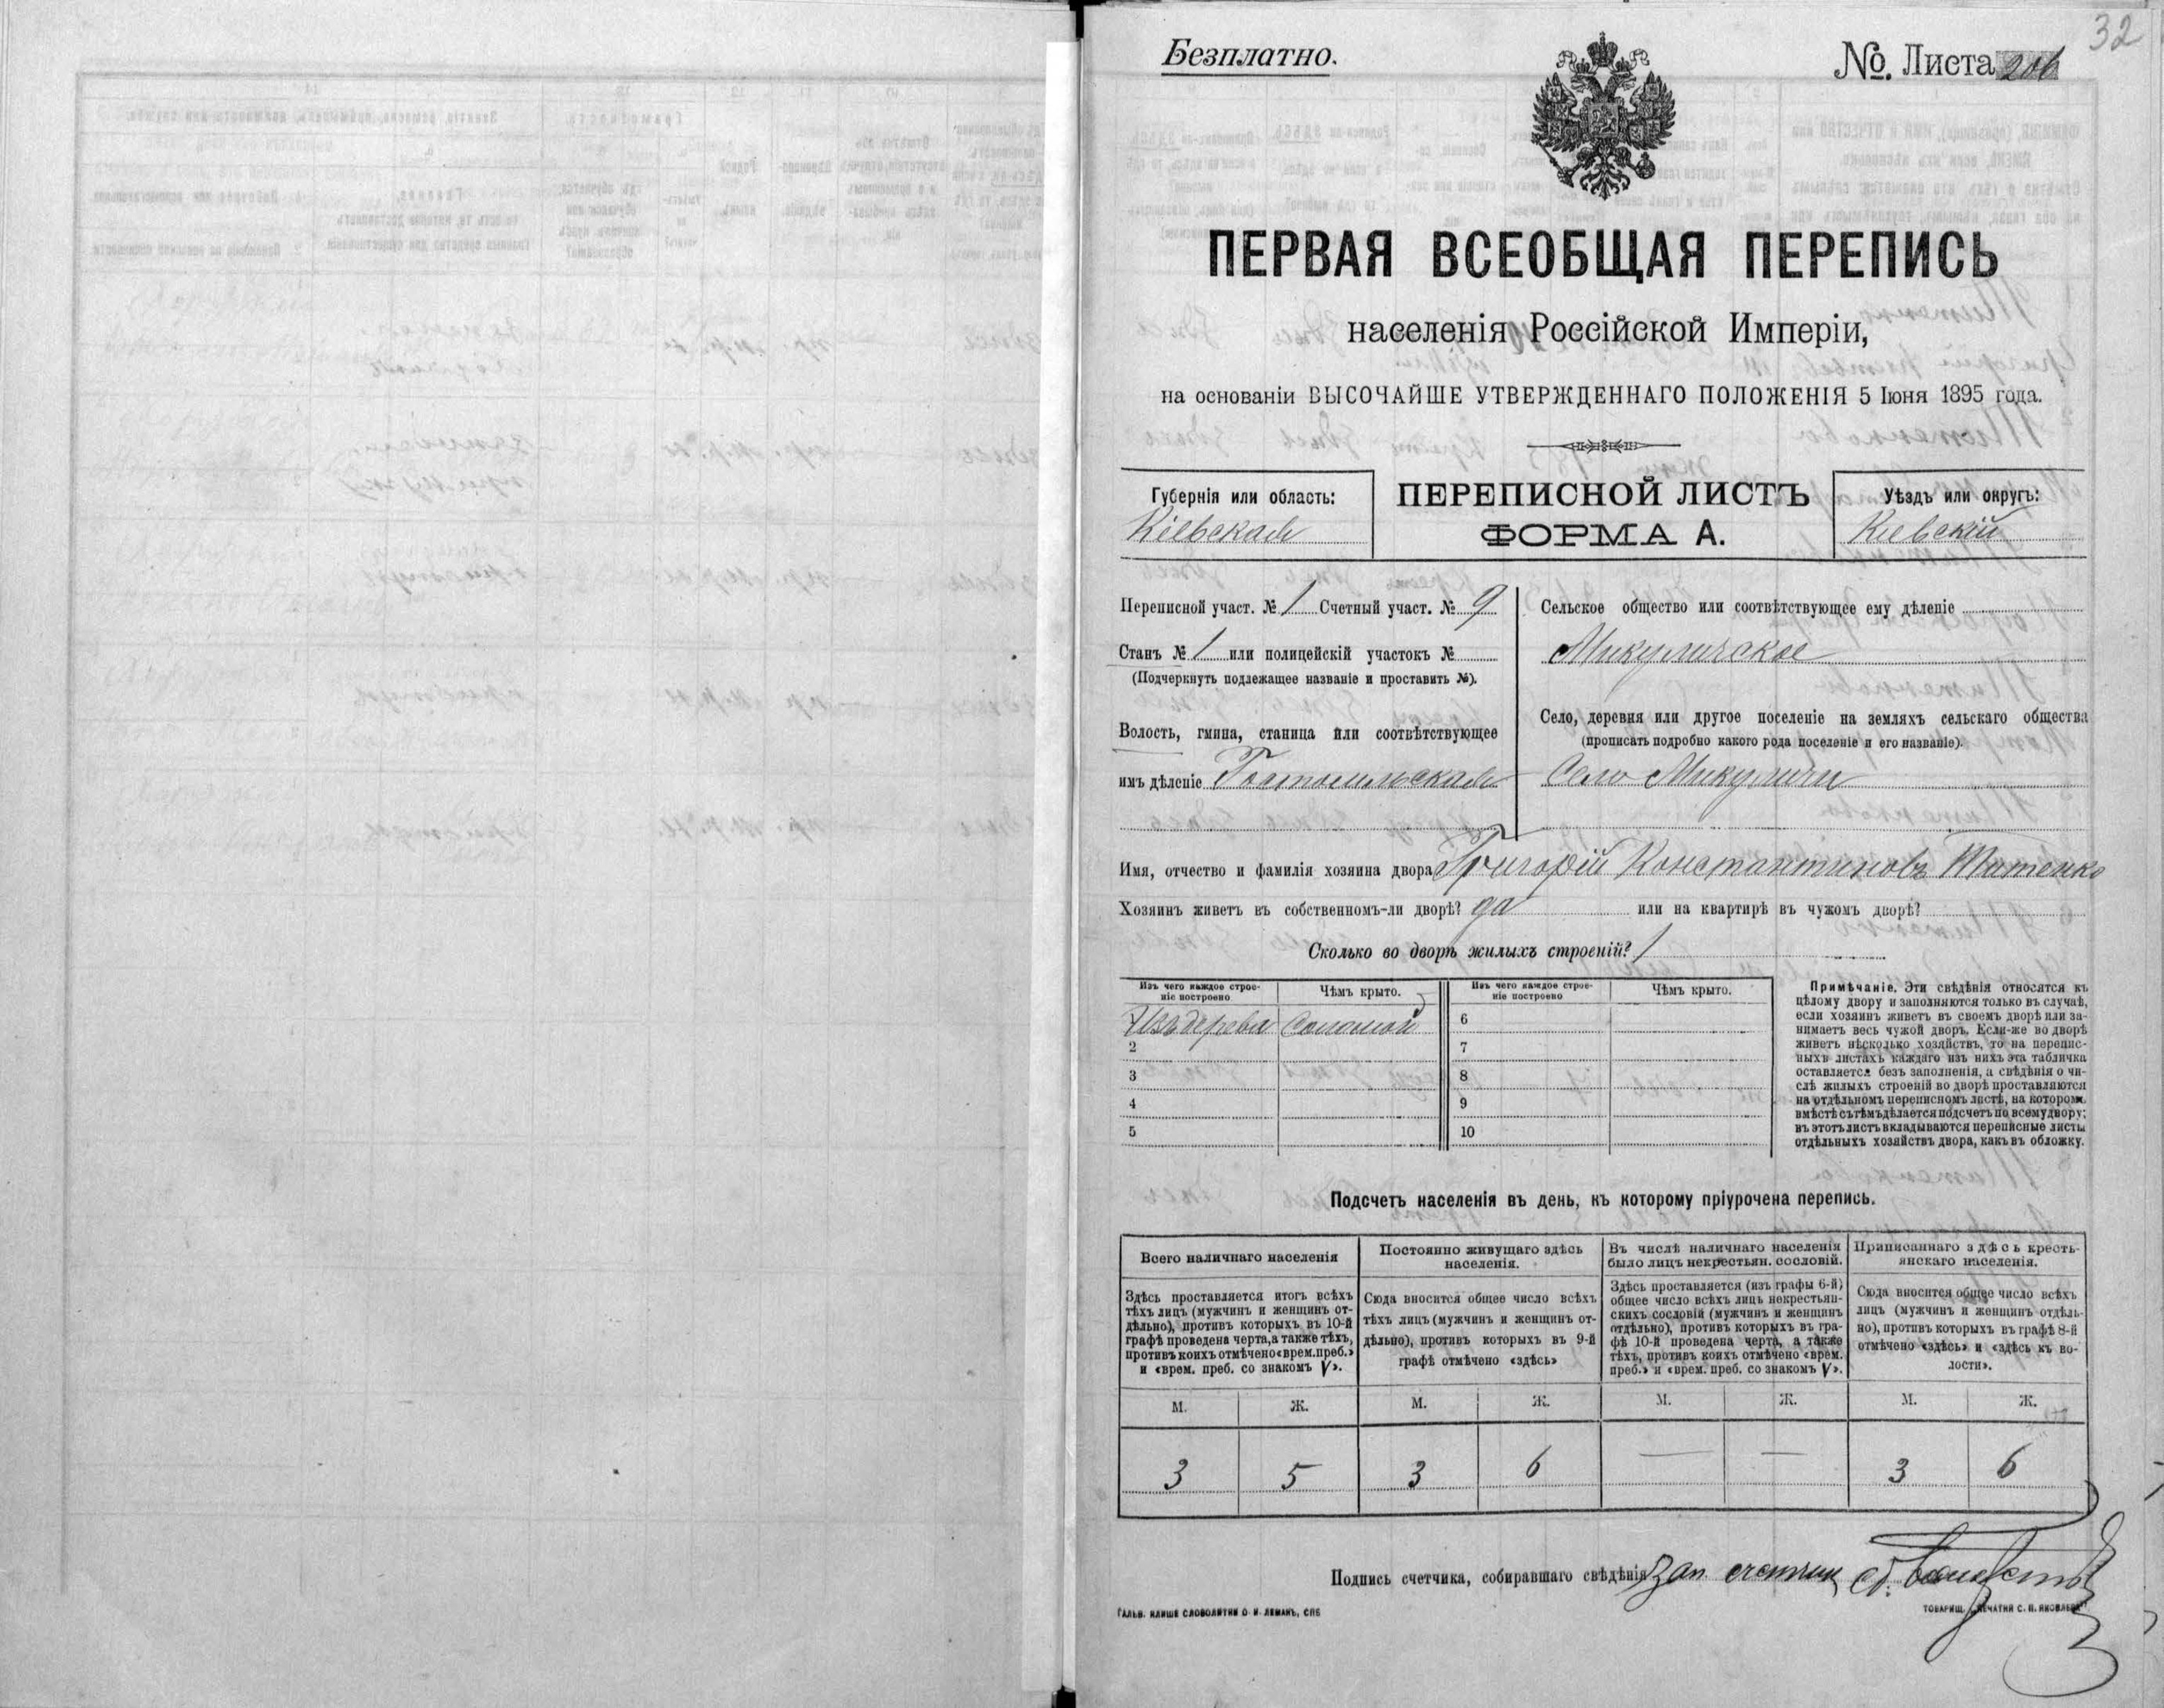 32
Безплатно.
№ Листа 206
ПЕРВАЯ ВСЕОБЩАЯ ПЕРЕПИСЬ
населенія Россійской Имперіи,
на основаніи ВЫСОЧАЙШЕ УТВЕРЖДЕННАГО ПОЛОЖЕНІЯ 5 Іюня 1895 года.
Губернія или область:
Кіевская
ПЕРЕПИСНОЙ ЛИСТЪ
ФОРМА А.
Уѣздъ или округъ:
Кіевскій
Переписной участ. № 1 Счетный участ. № 9
Станъ № 1 или полицейскій участокъ №
(Подчеркнуть подлежащее названіе и проставить №).
Волость, гмина, станица или соотвѣтствующее
имъ дѣленіе Гостомельская
Сельское общество или соотвѣтствующее ему дѣленіе
Микуличское
Село, деревня или другое поселеніе на земляхъ сельскаго общества
(прописать подробно какого рода поселеніе и его названіе).
Село Микуличи
Имя, отчество и фамилія хозяина двора Григорій Константиновъ Титенко
Хозяинъ живетъ въ собственномъ-ли дворѣ? да или на квартирѣ въ чужомъ дворѣ?
Сколько во дворѣ жилыхъ строеній? 1
Изъ чего каждое строе-
ніе построено
Чѣмъ крыто.
Изъ чего каждое строе-
ніе построено
Чѣмъ крыто.
Изъ дерева Соломой
6
2
7
3
8
4
9
5
10
Примѣчаніе. Эти свѣдѣнія относятся къ
цѣлому двору и заполняются только въ случаѣ,
если хозяинъ живетъ въ своемъ дворѣ или за-
нимаетъ весь чужой дворъ. Если-же во дворѣ
живетъ нѣсколько хозяйствъ, то на перепис-
ныхъ листахъ каждаго изъ нихъ эта табличка
оставляется безъ заполненія, а свѣдѣнія о чи-
слѣ жилыхъ строеній во дворѣ проставляются
на отдѣльномъ переписномъ листѣ, на которомъ
вмѣстѣ съ тѣмъ дѣлается подсчетъ по всему двору;
въ этотъ листъ вкладываются переписные листы
отдѣльныхъ хозяйствъ двора, какъ въ обложку.
Подсчетъ населенія въ день, къ которому пріурочена перепись.
Всего наличнаго населенія
Постоянно живущаго здѣсь
населенія.
Въ числѣ наличнаго населенія
было лицъ некрестьян. сословій.
Приписаннаго здѣсь кресть-
янскаго населенія.
Здѣсь проставляется итогъ всѣхъ
тѣхъ лицъ (мужчинъ и женщинъ от-
дѣльно), противъ которыхъ въ 10-й
графѣ проведена черта, а также тѣхъ,
противъ коихъ отмѣчено «врем. преб.»
и «врем. преб. со знакомъ V».
Сюда вносится общее число всѣхъ
тѣхъ лицъ (мужчинъ и женщинъ от-
дѣльно), противъ которыхъ въ 9-й
графѣ отмѣчено «здѣсь»
Здѣсь проставляется (изъ графы 6-й)
общее число всѣхъ лицъ некрестьян-
скихъ сословій (мужчинъ и женщинъ
отдѣльно), противъ которыхъ въ гра-
фѣ 10-й проведена черта, а также
тѣхъ, противъ коихъ отмѣчено «врем.
преб.» и «врем. преб. со знакомъ V».
Сюда вносится общее число всѣхъ
лицъ (мужчинъ и женщинъ отдѣль-
но), противъ которыхъ въ графѣ 8-й
отмѣчено «здѣсь» и «здѣсь къ во-
лости».
М. Ж. М. Ж. М. Ж. М. Ж.
3 5 3 6 — — 3 6
Подпись счетчика, собиравшаго свѣдѣнія Зап. счетчик
ГАЛЬВ. КЛИШЕ СЛОВОЛИТНИ О. И. ЛЕМАНЪ, СПБ
ТОВАРИЩ. ПЕЧАТНИ С. П. ЯКОВЛЕВА